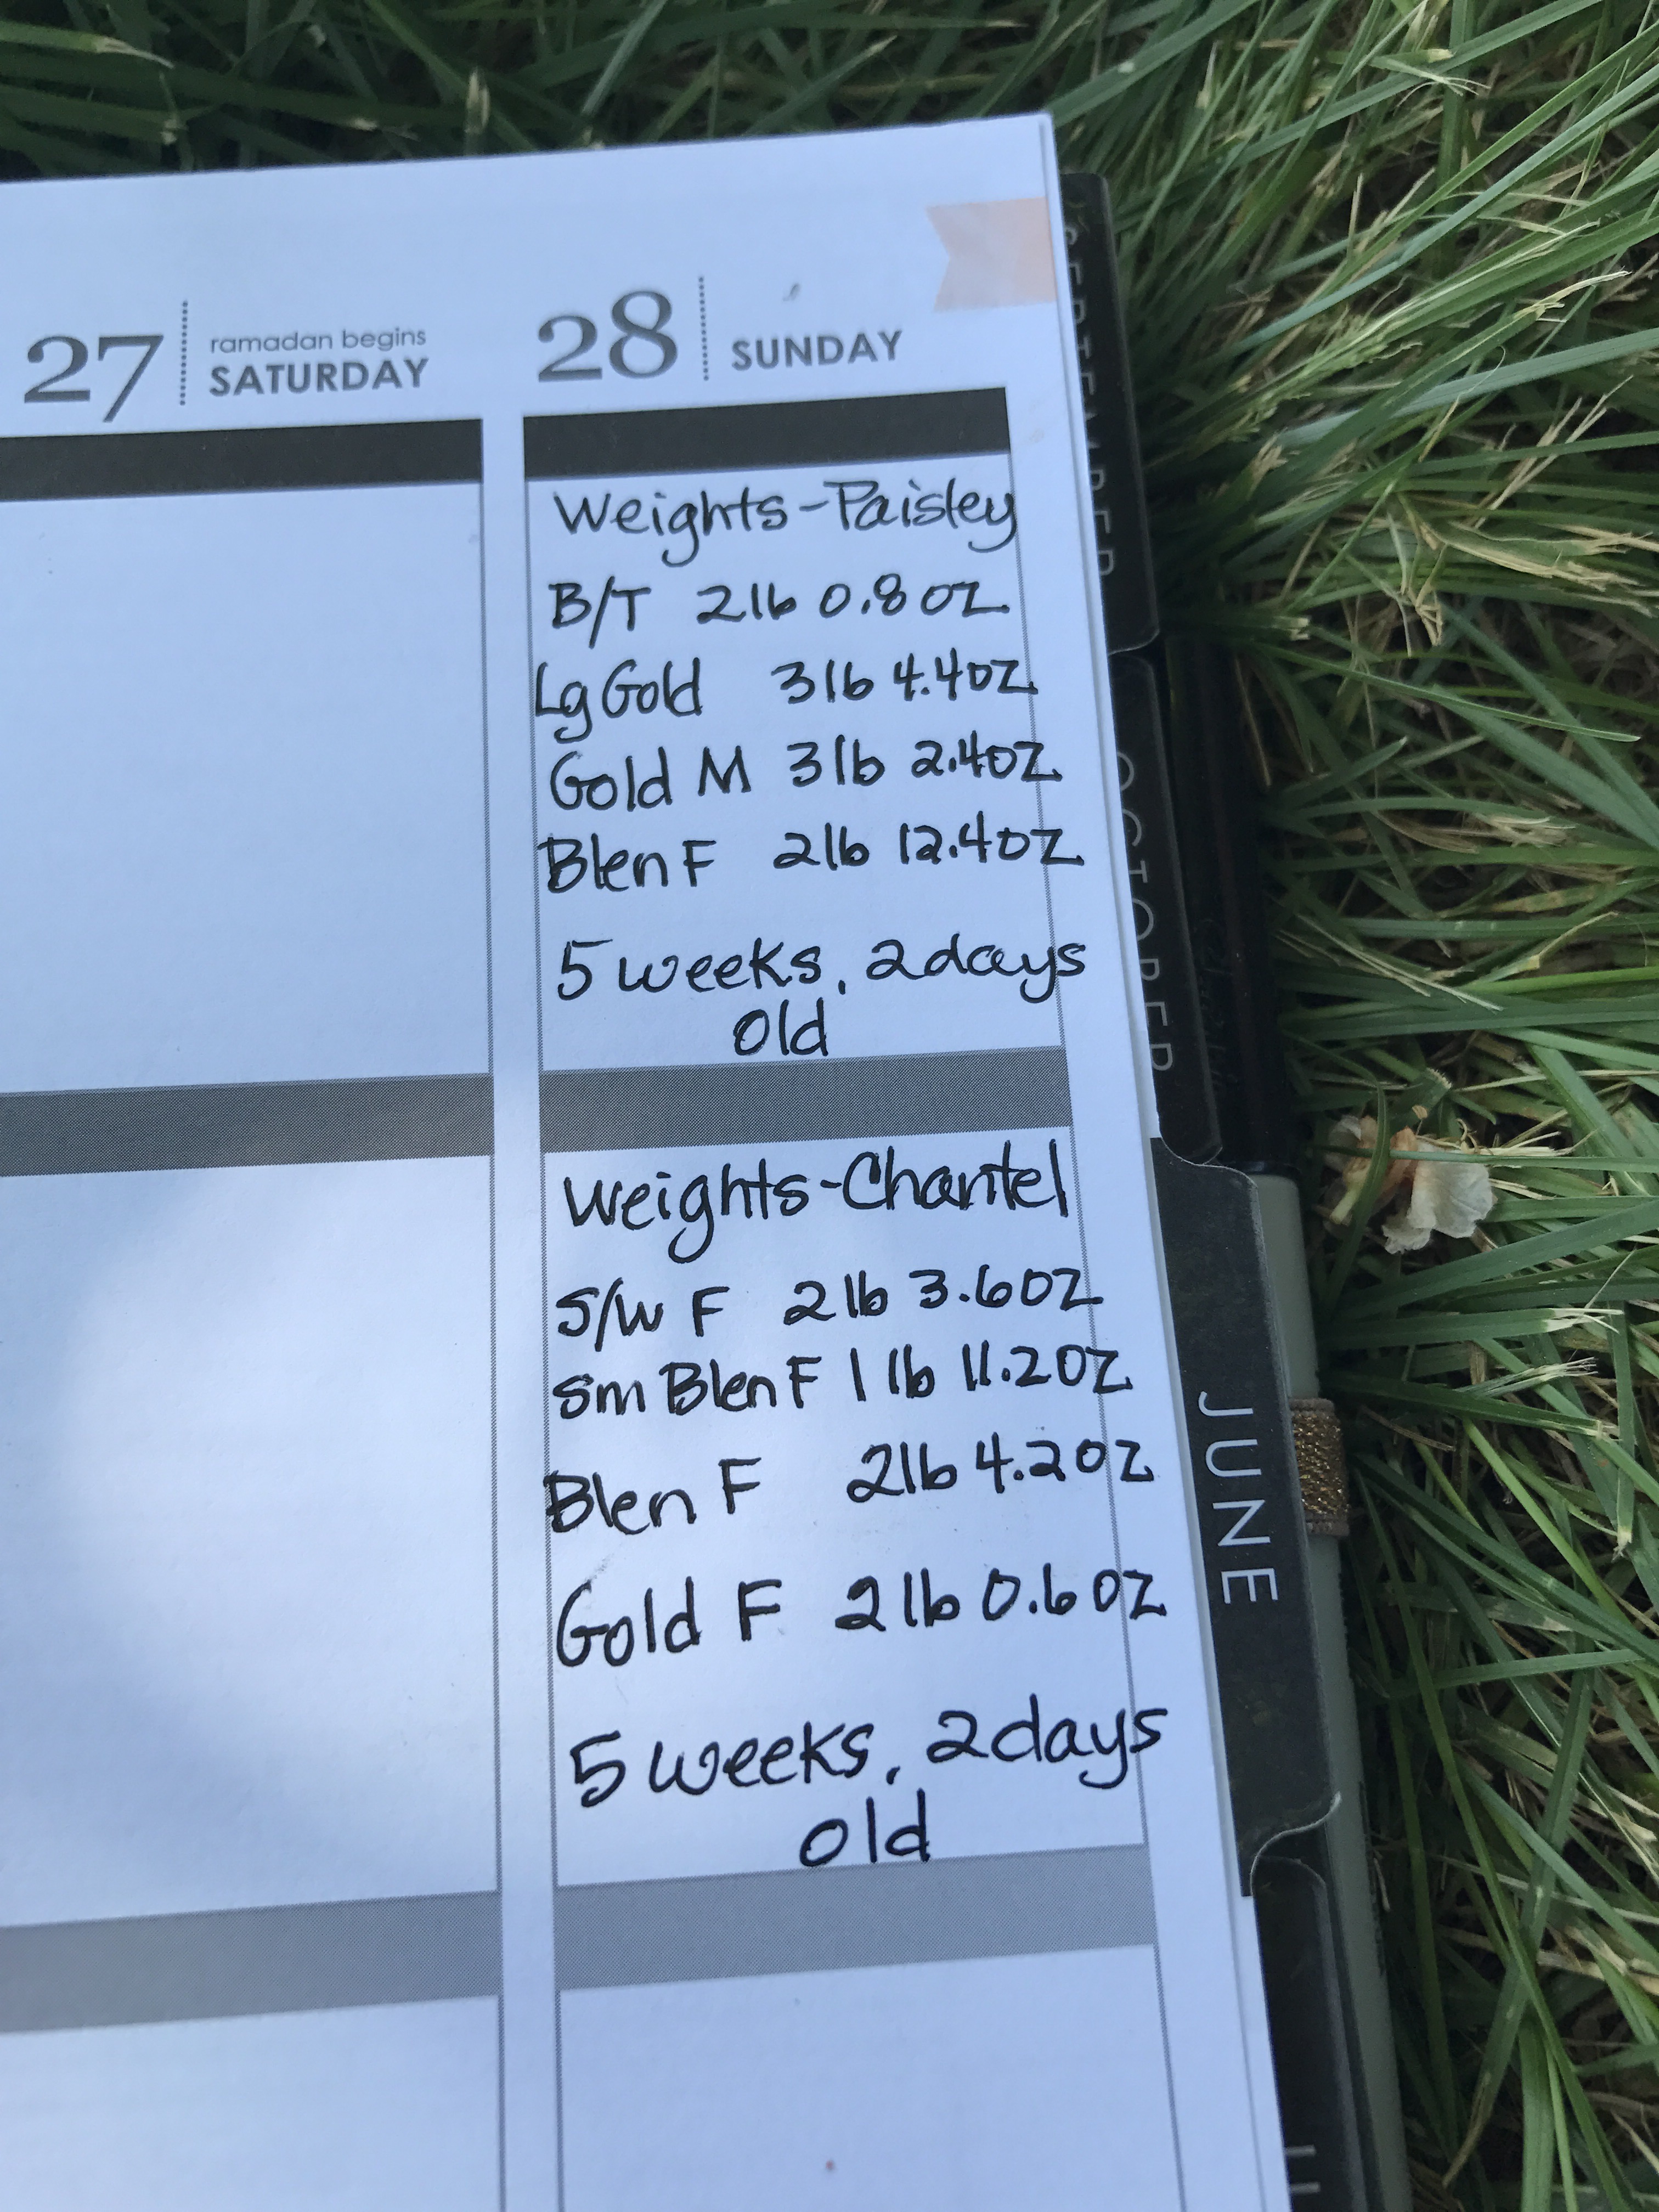 27
ramadan begins
SATURDAY
28
SUNDAY
Weights-Paisley
B/T 2lb 0.8oz
Lg Gold 3lb 4.4oz
Gold M 3lb 2.4oz
Blen F 2lb 12.4oz
5 weeks, 2days
old
Weights-Chantel
S/W F 2lb 3.6oz
Sm Blen F 1 lb 11.2oz
Blen F 2lb 4.2oz
Gold F 2lb 0.6oz
5 weeks, 2days
old
SEPTEMBER
OCTOBER
JUNE